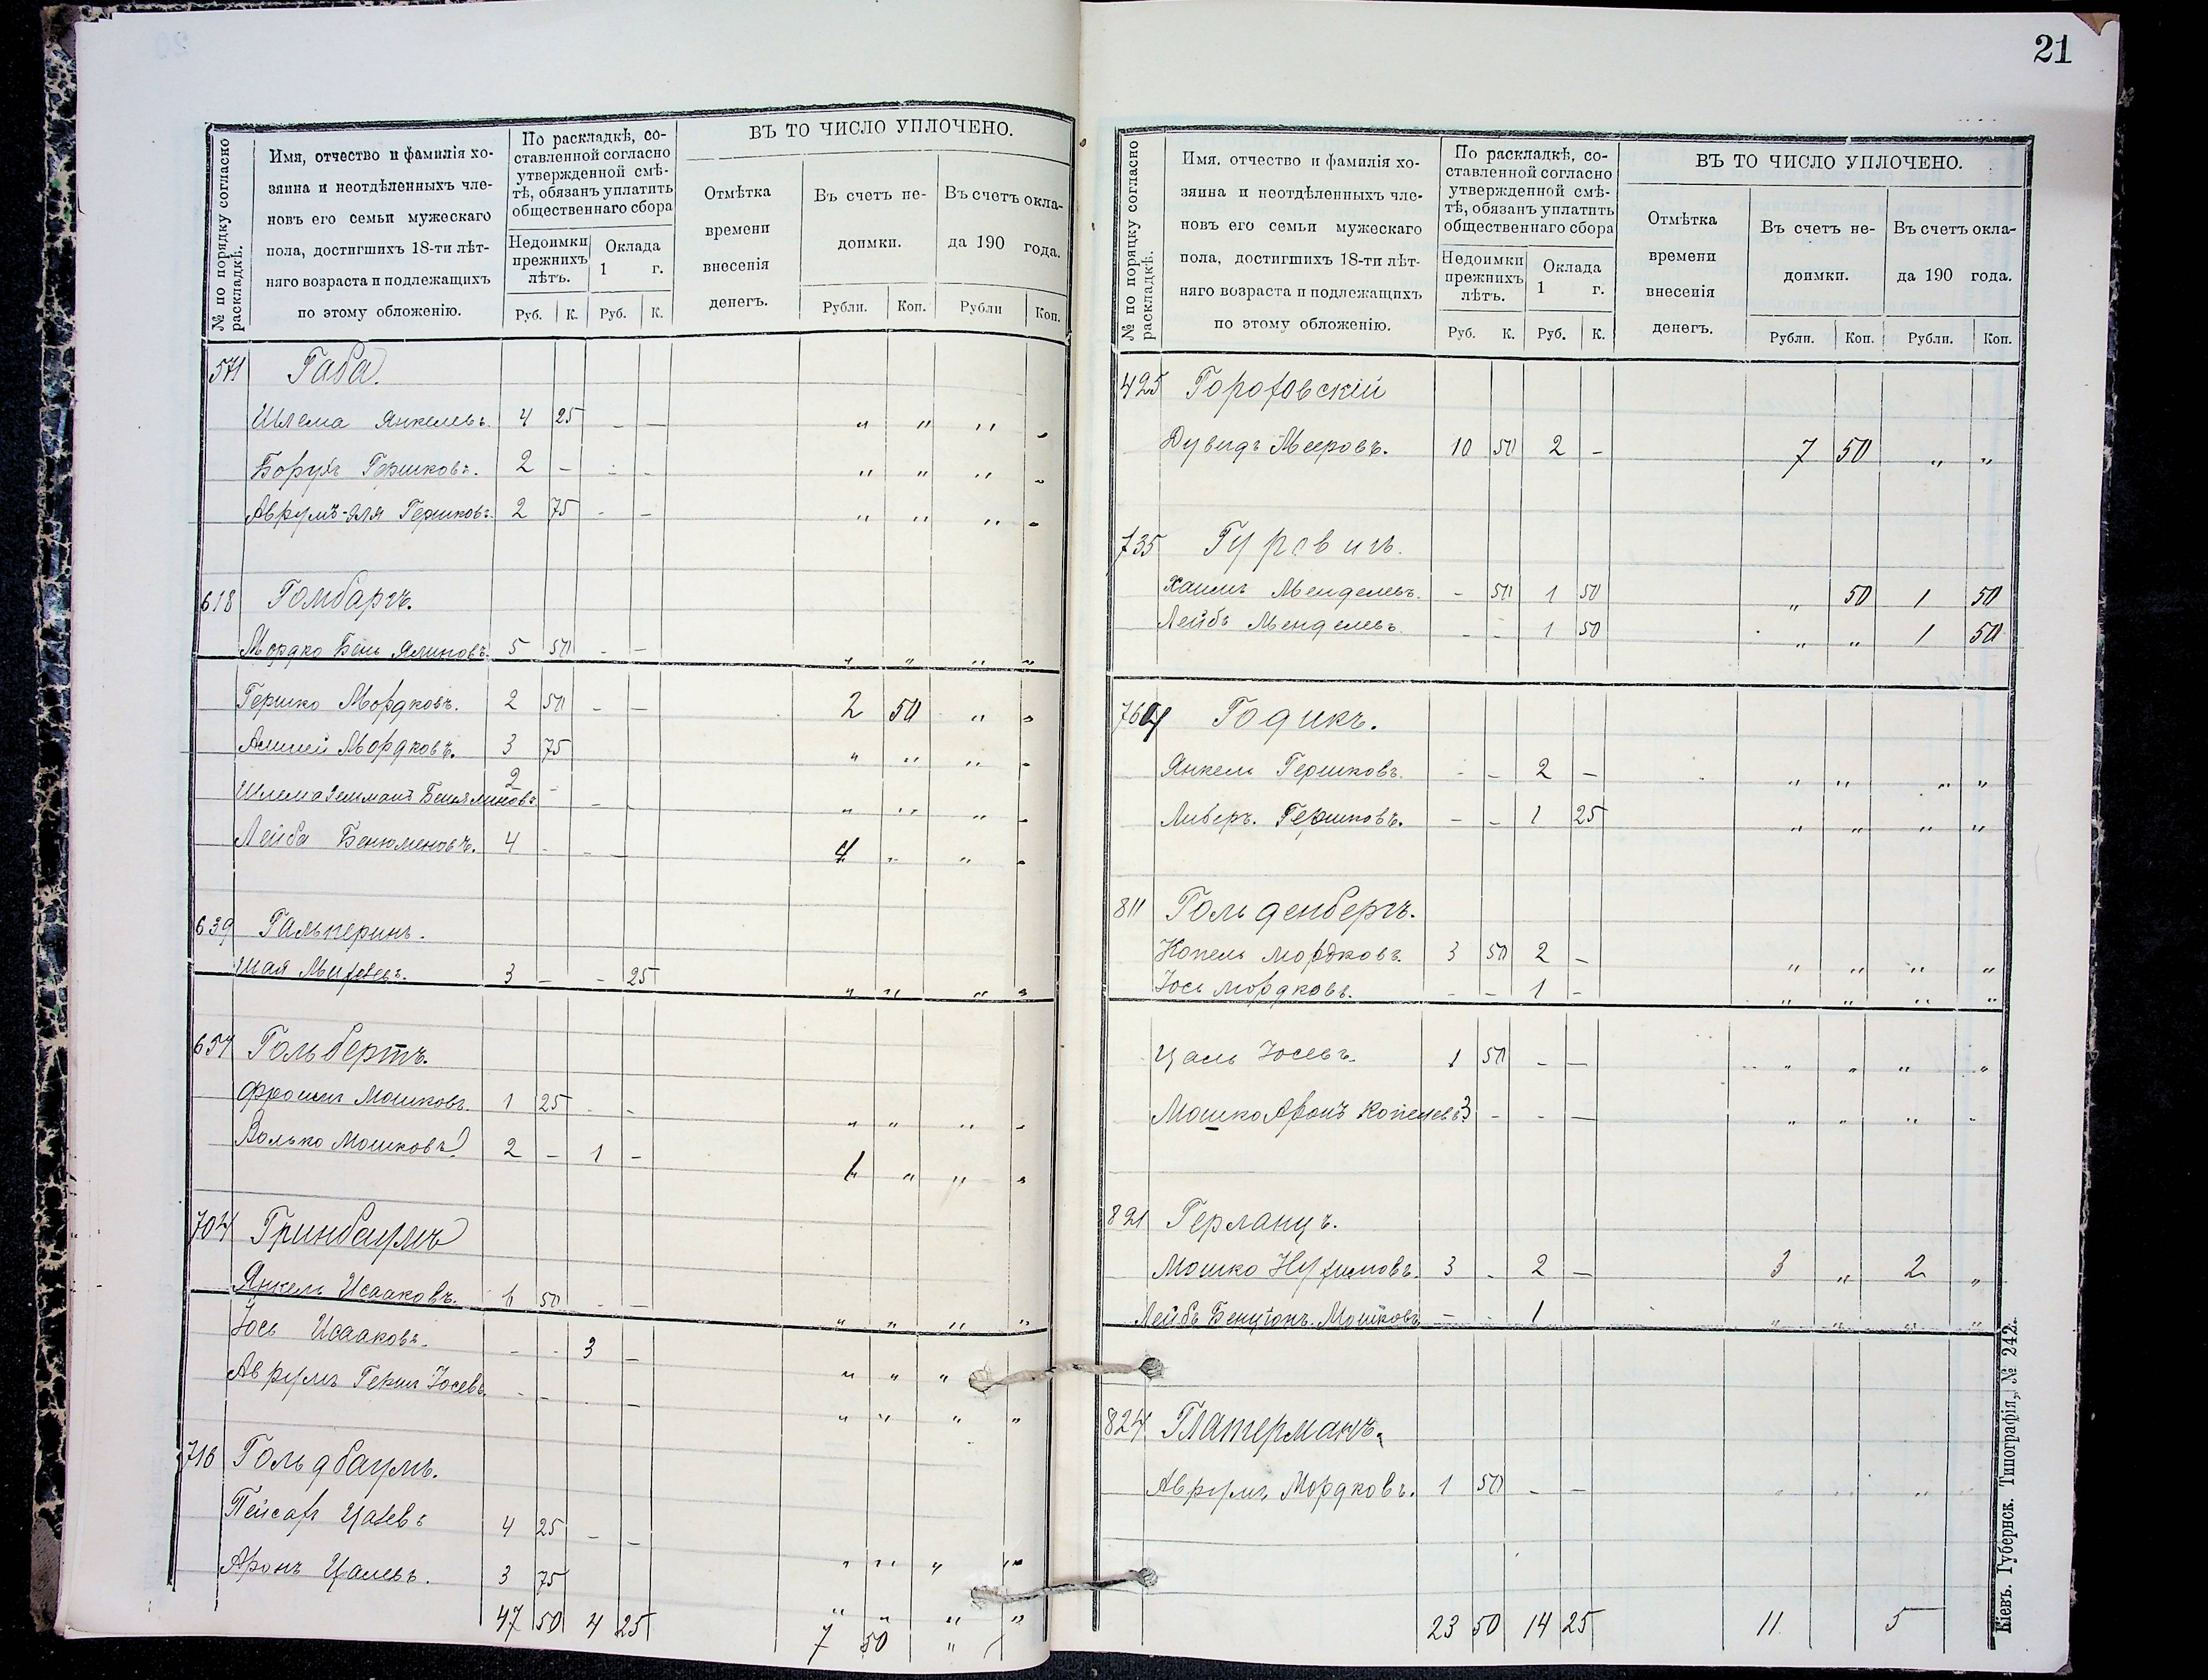 № по порядку согласно раскладкѣ.
Имя, отчество и фамилія хозяина и неотдѣленныхъ членовъ его семьи мужескаго пола, достигшихъ 18-ти лѣтняго возраста и подлежащихъ по этому обложенію.
По раскладкѣ, составленной согласно утвержденной смѣтѣ, обязанъ уплатить общественнаго сбора
Недоимки прежнихъ лѣтъ. Оклада 1 г.
Руб. К. Руб. К.
ВЪ ТО ЧИСЛО УПЛОЧЕНО.
Отмѣтка времени внесенія денегъ.
Въ счетъ недоимки. Въ счетъ оклада 190 года.
Рубли. Коп. Рубли Коп.
571 Габа.
Шлема Янкелевъ. 4 25 - - " " " "
Борухъ Гершковъ. 2 - - - " " " "
Аврумъ-Эля Гершковъ. 2 75 - - " " " "
618 Гомбаргъ.
Мордко Бень Яминовъ. 5 50 - - " " " "
Гершко Мордковъ. 2 50 - - 2 50 " "
Мордковъ. 3 75 " " " "
Шлема Зельманъ Беняминовъ 2 - - - " " " "
Лейба Бенюменовъ. 4 - - - 4 " " "
639 Гальперинъ.
Шая Михелевъ. 3 - - 25 " " " "
654 Гольбертъ.
Фроимъ Мошковъ. 1 25 - - " " " "
Волько Мошковъ. 2 - 1 - 1 " " "
704 Гринбаумъ
Янкель Исааковъ. 6 50 - - " " " "
Іось Исааковъ. - - 3 - " " "
Аврумъ Герш Іосевъ. - - - " " " "
716 Гольдбаумъ.
Пейсахъ Цалевъ 4 25 - - " " " "
Аронъ Цалевъ. 3 75 " " " "
47 50 4 25 7 50 "
21
№ по порядку согласно раскладкѣ.
Имя, отчество и фамилія хозяина и неотдѣленныхъ членовъ его семьи мужескаго пола, достигшихъ 18-ти лѣтняго возраста и подлежащихъ по этому обложенію.
По раскладкѣ, составленной согласно утвержденной смѣтѣ, обязанъ уплатить общественнаго сбора
Недоимки прежнихъ лѣтъ. Оклада 1 г.
Руб. К. Руб. К.
ВЪ ТО ЧИСЛО УПЛОЧЕНО.
Отмѣтка времени внесенія денегъ.
Въ счетъ недоимки. Въ счетъ оклада 190 года.
Рубли. Коп. Рубли. Коп.
425 Гороховскій
Дувидъ Мееровъ. 10 50 2 - 7 50 " "
735 Гурвичъ.
Хаимъ Менделевъ. - 50 1 50 " 50 1 50
Лейбъ Менделевъ. - - 1 50 " " 1 50
764 Годикъ.
Янкель Гершковъ. - - 2 - " " " "
Либеръ. Гершковъ. - - 1 25 " " " "
811 Гольденбергъ.
Копель Мордковъ. 3 50 2 - " " " "
Іось Мордковъ. - - 1 - " " " "
Цаль Іосевъ. 1 50 - - " " " "
Мошко Аронъ Копелевъ 3 - - - " " " "
821 Герланцъ.
Мошко Нухимовъ. 3 - 2 - 3 " 2 "
Лейбъ Бенціонъ. Мошковъ - - 1 " " " "
824 Глатерманъ.
Аврумъ Мордковъ. 1 50 - - " " " "
23 50 14 25 11 5
Кіевъ. Губернск. Типографія, № 242.